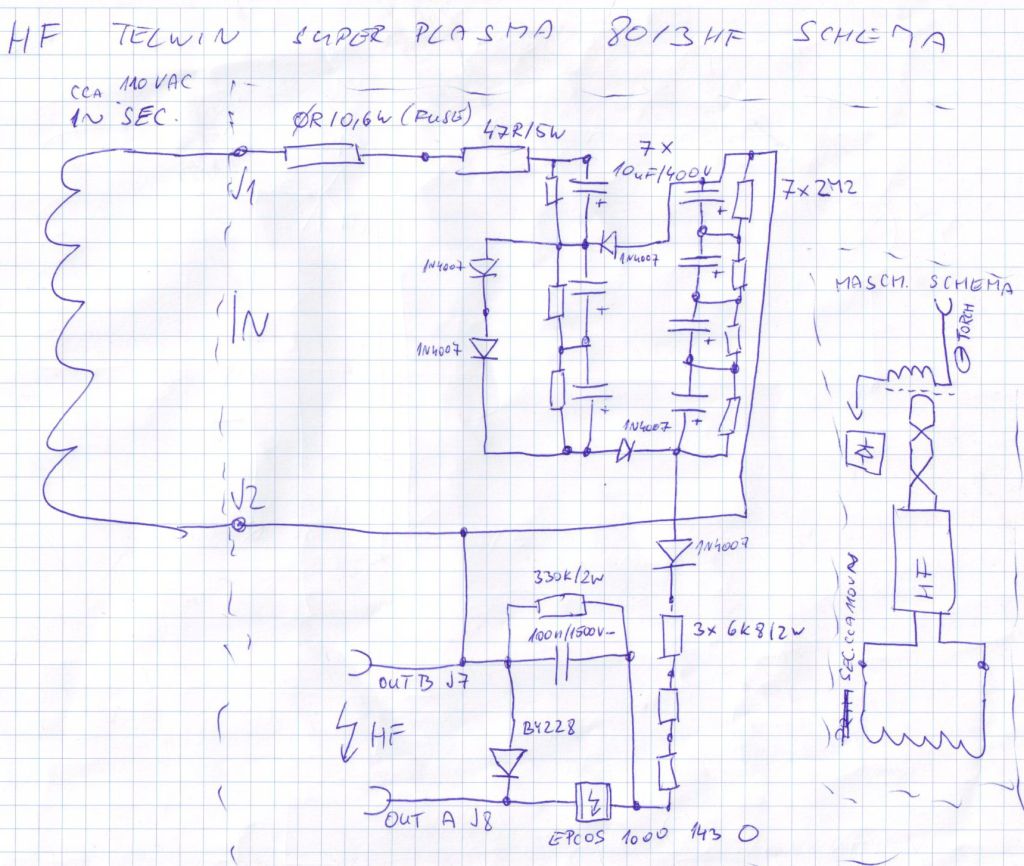 HF TELWIN SUPER PLASMA 80/3HF SCHEMA
CCA 110VAC
IN SEC.
ØR/0,6W (FUSE)
47R/5W
7x
10uF/400V
7x2M2
J1
+
+
1N4007
1N4007
+
+
MASCH. SCHEMA
⊖ TORCH
IN
+
+
1N4007
+
+
1N4007
J2
1N4007
330K/2W
100n/1500V~
3x 6K8/2W
HF
SEC. CCA 110VAC
OUT B J7
HF
BY228
OUT A J8
EPCOS 1000 143 O